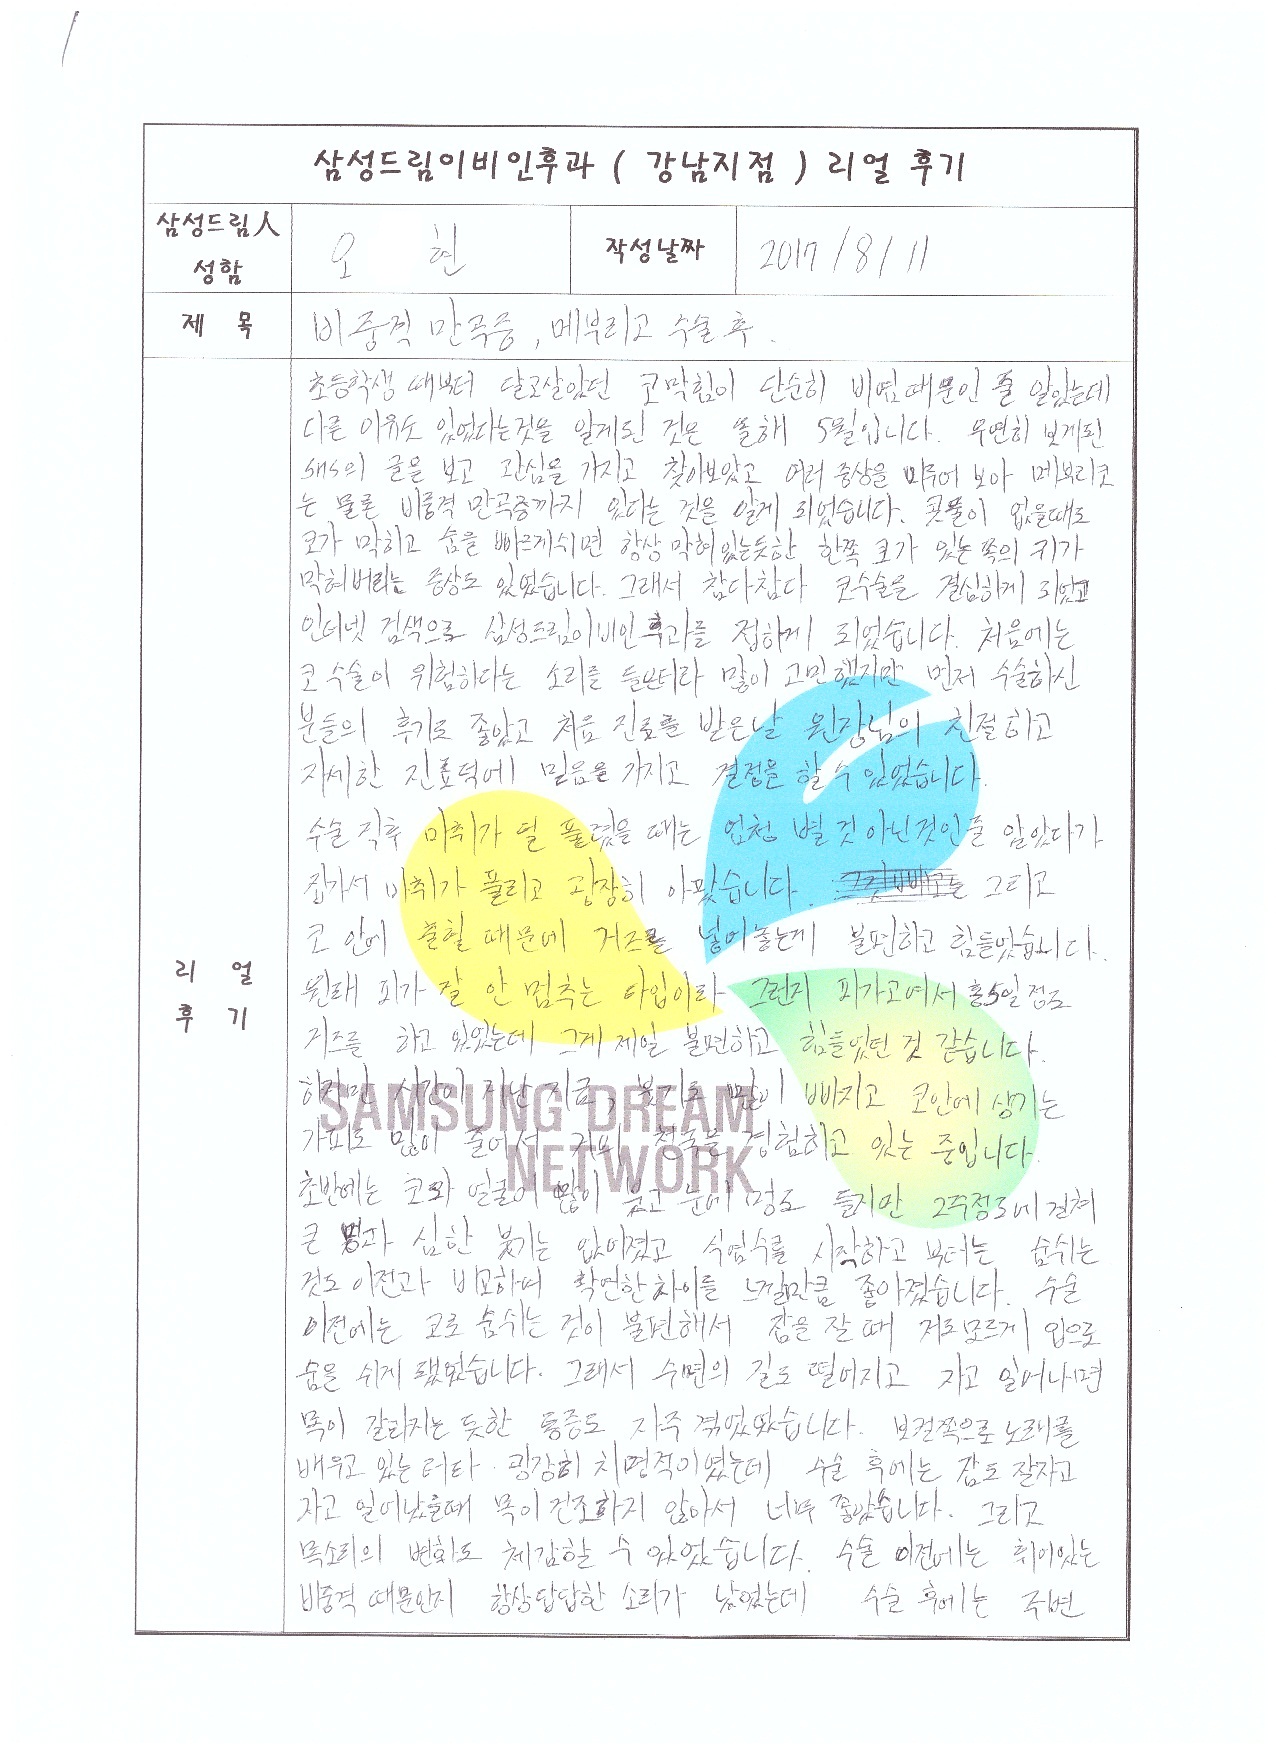 삼성드림이비인후과 ( 강남지점 ) 리얼 후기
삼성드림人
성함
오 현
작성날짜
2017/8/11
제 목
비중격 만곡증, 메부리코 수술 후.
리 얼
후 기
초등학생 때부터 달고살았던 코막힘이 단순히 비염때문인 줄 알았는데
다른 이유도 있었다는것을 알게된 것은 올해 5월입니다. 우연히 보게된
sns의 글을 보고 관심을 가지고 찾아보았고 여러 증상을 미루어 보아 메부리코
는 물론 비중격 만곡증까지 있다는 것을 알게 되었습니다. 콧물이 없을때도
코가 막히고 숨을 빠르게쉬면 항상 막혀있는듯한 한쪽 코가 있는 쪽의 귀가
막혀버리는 증상도 있었습니다. 그래서 참다참다 코수술을 결심하게 되었고
인터넷 검색으로 삼성드림이비인후과를 접하게 되었습니다. 처음에는
코 수술이 위험하다는 소리를 들은터라 많이 고민했지만 먼저 수술하신
분들의 후기도 좋았고 처음 진료를 받은날 원장님의 친절하고
자세한 진료덕에 믿음을 가지고 결정을 할 수 있었습니다.
수술 직후 마취가 덜 풀렸을 때는 엄청 별 것 아닌것인줄 알았다가
집가서 마취가 풀리고 굉장히 아팠습니다. 그리고
코 안에 출혈 때문에 거즈를 넣어놓는게 불편하고 힘들었습니다.
원래 피가 잘 안 멈추는 타입이라 그런지 피가고여서 총5일 정도
거즈를 하고 있었는데 그게 제일 불편하고 힘들었던 것 같습니다.
하지만 시간이 지난 지금, 붓기도 많이 빠지고 코안에 생기는
가피도 많이 줄어서 천국을 경험하고 있는 중입니다.
SAMSUNG DREAM
NETWORK
초반에는 코와 얼굴이 많이 붓고 눈에 멍도 들지만 2주정도에 걸쳐
큰 멍과 심한 붓기는 없어졌고 식염수를 시작하고 부터는 숨쉬는
것도 이전과 비교하며 확연한차이를 느낄만큼 좋아졌습니다. 수술
이전에는 코로 숨쉬는 것이 불편해서 잠을 잘 때 저도모르게 입으로
숨을 쉬게 됐었습니다. 그래서 수면의 질도 떨어지고 자고 일어나면
목이 갈라지는 듯한 통증도 자주 겪었었습니다. 보컬쪽으로 노래를
배우고 있는 터라 굉장히 치명적이였는데 수술 후에는 잠도 잘자고
자고 일어났을때 목이 건조하지 않아서 너무 좋았습니다. 그리고
목소리의 변화도 체감할 수 있었습니다. 수술 이전에는 휘어있는
비중격 때문인지 항상답답한 소리가 났었는데 수술 후에는 주변